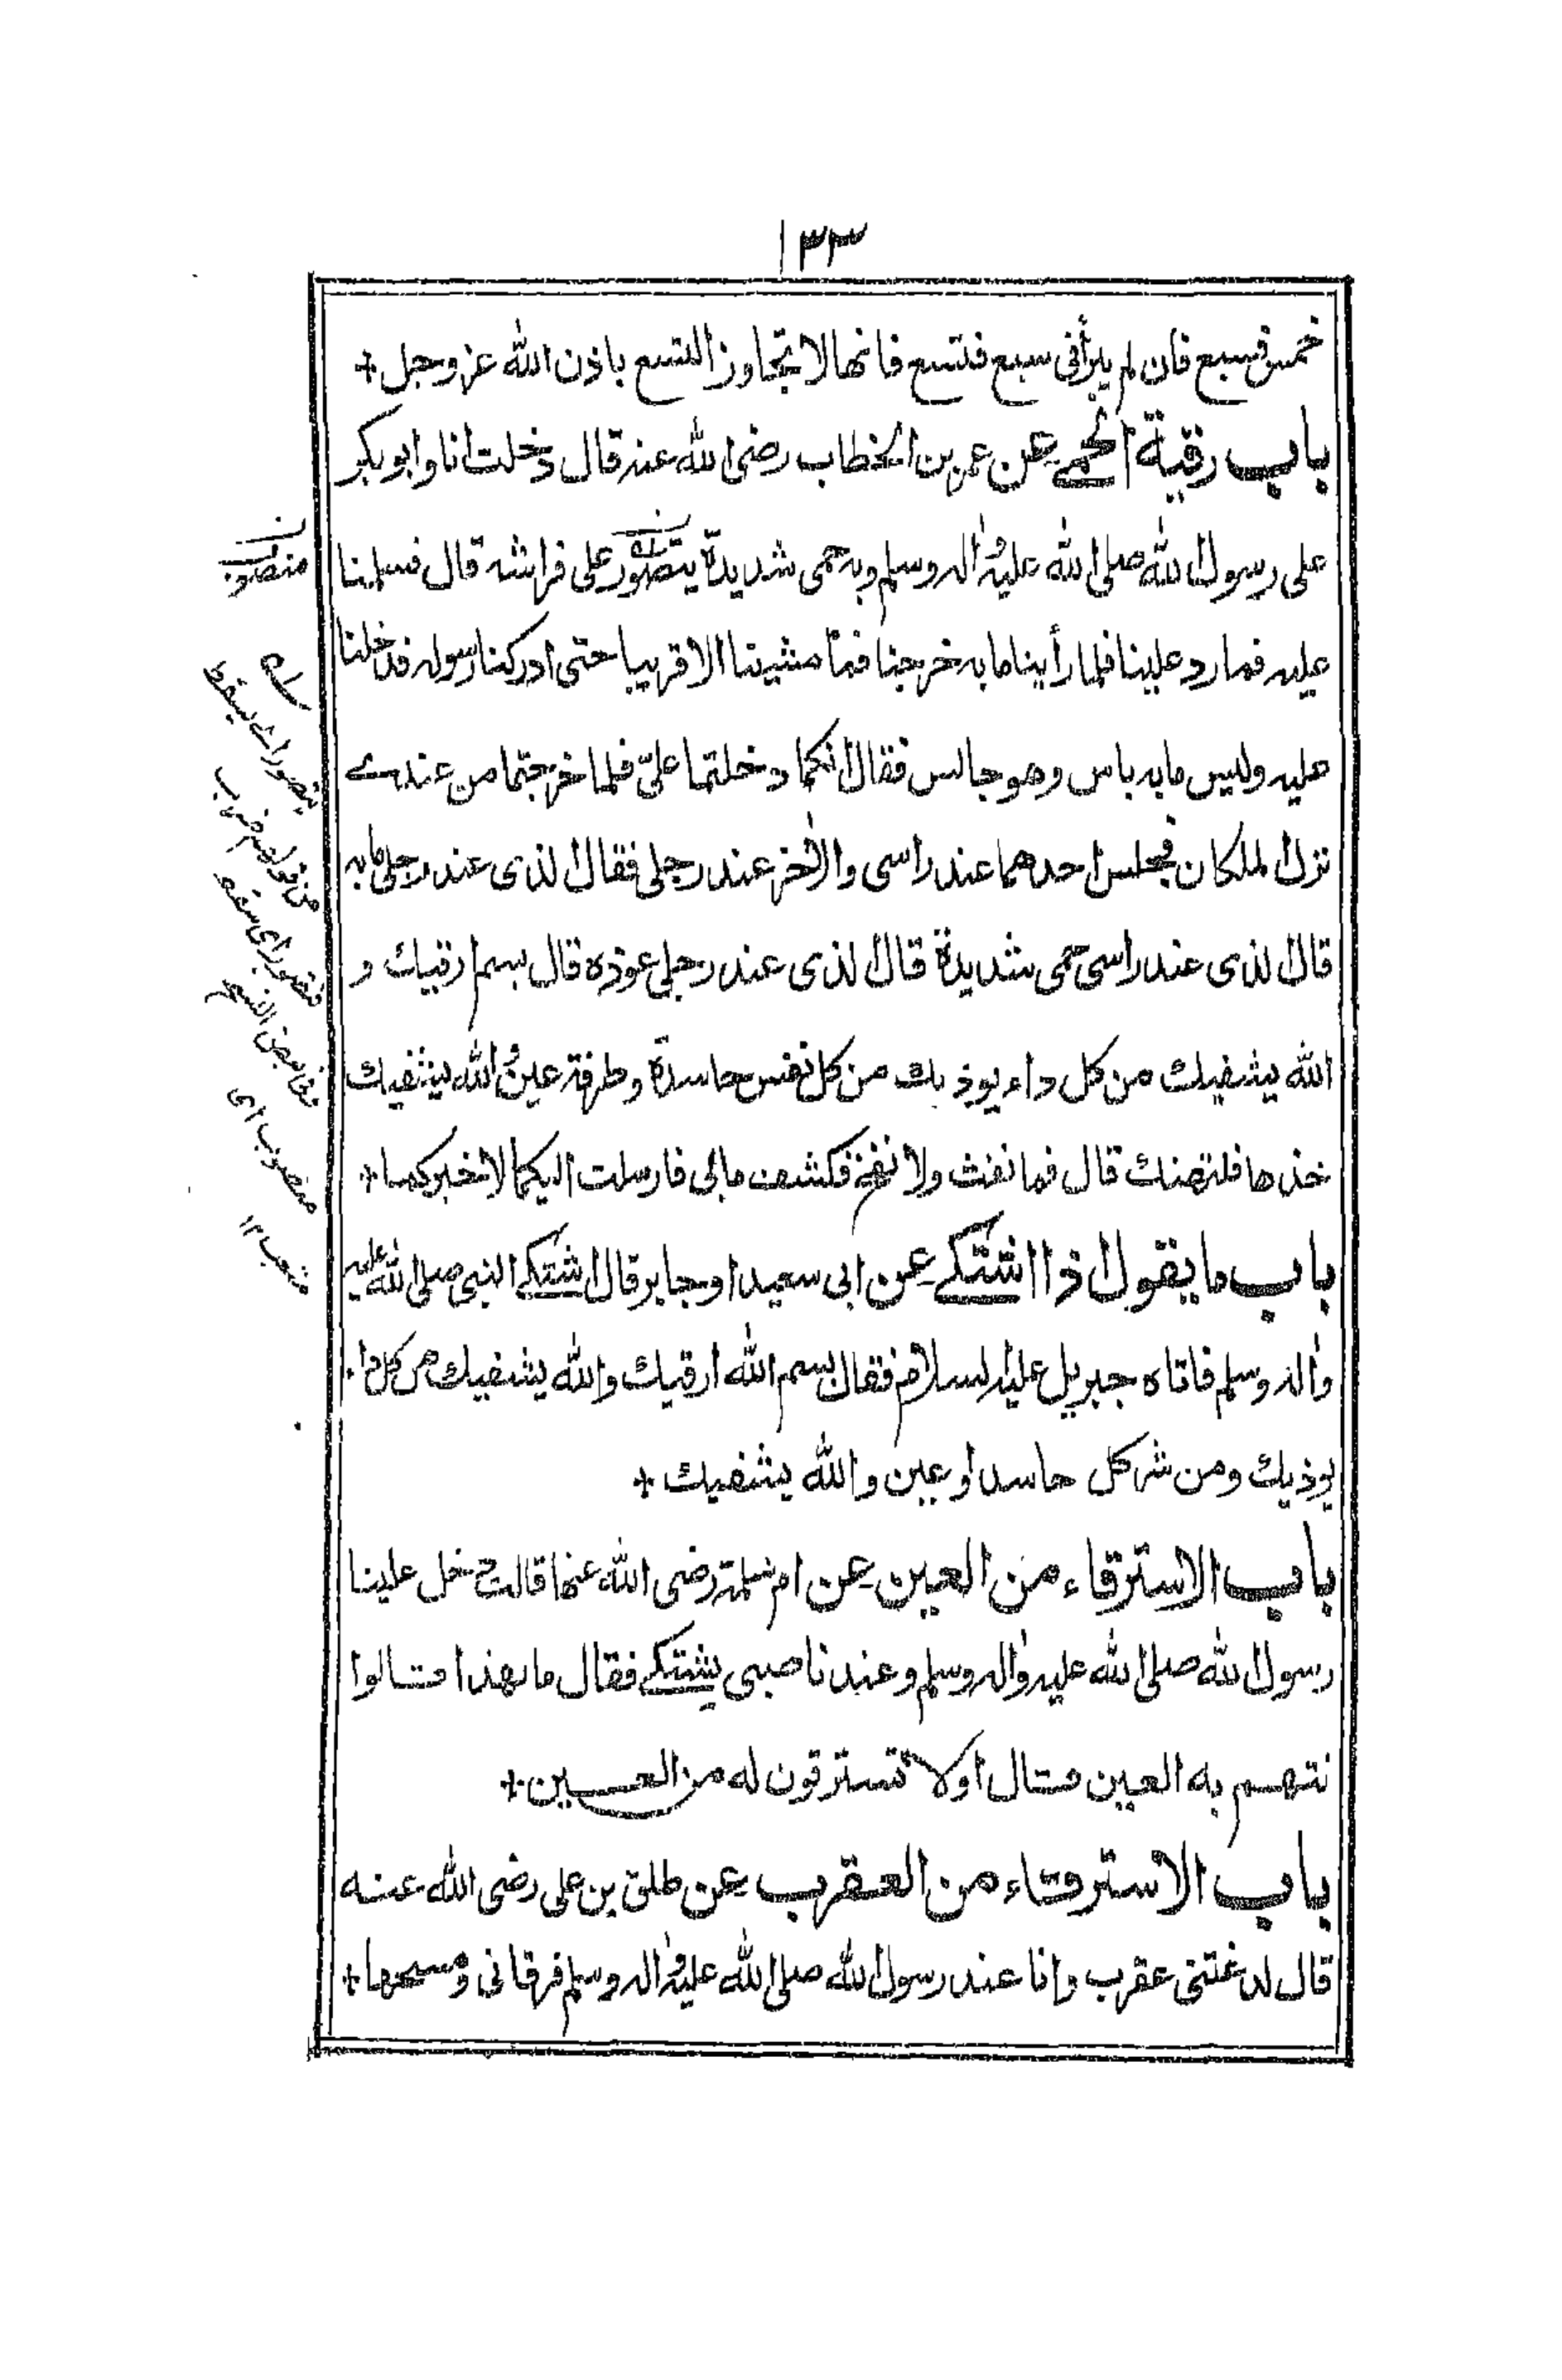 ١٣٣
خمس فسبع فان لم يبرأ فى سبع فتسع فانها لا تجاوز التسع باذن الله عز وجل +
باب رقية الحمے عن عمر بن الخطاب رضى الله عنه قال دخلت انا وابو بكر
على رسول الله صلى الله عليه واله وسلم وبه حمى شديدة يتصور على فراشه قال فسلمنا
عليه فما رد علينا فلما رأينا ما به خرجنا فما مشينا الا قريبا حتى ادركنا رسوله فدخلنا
عليه وليس ما به باس وهو جالس فقال انكما دخلتما علىّ فلما خرجتما من عندے
نزل الملكان فجلس احدهما عند راسى والاخر عند رجلى فقال الذى عند رجلى ما به
قال الذى عند راسى حمى شديدة قال الذى عند رجلى عوذه قال بسم ارقيك و
الله يشفيك من كل داء يوذيك من كل نفس حاسدة وطرفة عين والله يشفيك
خذها فلتهنك قال فما نفث ولا نفخ فكشف ما بى فارسلت اليكما لاخبركما +
باب ما يقول اذا اشتكے عن ابى سعيد او جابر قال اشتكے النبى صلى الله عليه
واله وسلم فاتاه جبريل عليه السلام فقال بسم الله ارقيك والله يشفيك من كل داء
يوذيك ومن شر كل حاسد او عين والله يشفيك +
باب الاسترقاء من العين عن ام سلمة رضى الله عنها قالت دخل علينا
رسول الله صلى الله عليه واله وسلم وعندنا صبى يشتكے فقال ما لهذا قالوا
نتهم به العين قال اولا تسترقون له من العين +
باب الاسترقاء من العقرب عن طلق بن على رضى الله عنه
قال لدغتنى عقرب وانا عند رسول الله صلى الله عليه واله وسلم فرقانى ومسحها +
يتصور اے يسقط
من قولهم ضرب
فتصور اى سقط